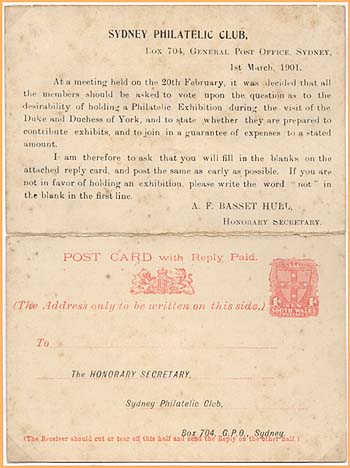 SYDNEY PHILATELIC CLUB,
Box 704, General Post Office, Sydney,
1st March, 1901.
At a meeting held on the 20th February, it was decided that all
the members should be asked to vote upon the question as to the
desirability of holding a Philatelic Exhibition during the visit of the
Duke and Duchess of York, and to state whether they are prepared to
contribute exhibits, and to join in a guarantee of expenses to a stated
amount.
I am therefore to ask that you will fill in the blanks on the
attached reply card, and post the same as early as possible. If you are
not in favor of holding an exhibition, please write the word "not" in
the blank in the first line.
A. F. BASSET HULL,
Honorary Secretary.
POST CARD with Reply Paid.
(The Address only to be written on this side.)
1d 1d
NEW
SOUTH WALES
POSTAGE
To
The HONORARY SECRETARY,
Sydney Philatelic Club,
Box 704, G.P.O., Sydney.
(The Receiver should cut or tear off this half and send the Reply on the other half.)